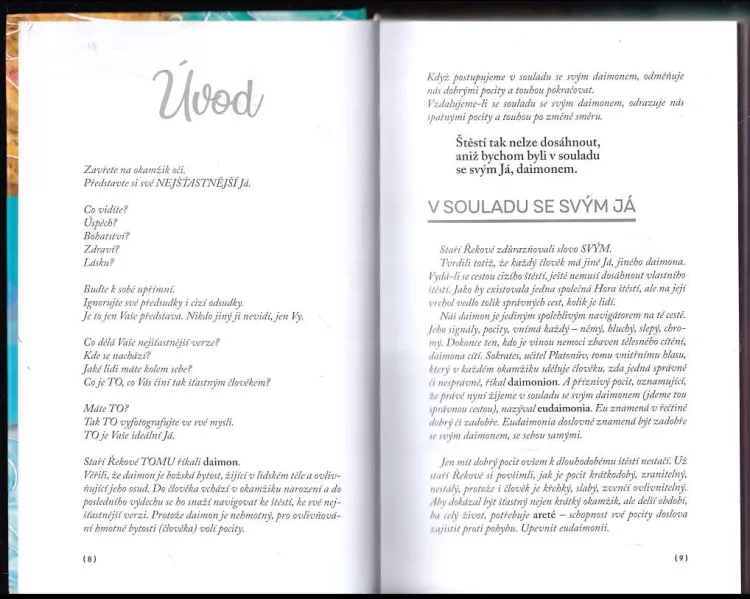 Úvod
Zavřete na okamžik oči.
Představte si své NEJŠŤASTNĚJŠÍ Já.
Co vidíte?
Úspěch?
Bohatství?
Zdraví?
Lásku?
Buďte k sobě upřímní.
Ignorujte své předsudky i cizí odsudky.
Je to jen Vaše představa. Nikdo jiný ji nevidí, jen Vy.
Co dělá Vaše nejšťastnější verze?
Kde se nachází?
Jaké lidi máte kolem sebe?
Co je TO, co Vás činí tak šťastným člověkem?
Máte TO?
Tak TO vyfotografujte ve své mysli.
TO je Vaše ideální Já.
Staří Řekové TOMU říkali daimon.
Věřili, že daimon je božská bytost, žijící v lidském těle a ovliv-
ňující jeho osud. Do člověka vchází v okamžiku narození a do
posledního výdechu se ho snaží navigovat ke štěstí, ke své nej-
šťastnější verzi. Protože daimon je nehmotný, pro ovlivňová-
ní hmotné bytosti (člověka) volí pocity.
(8)
Když postupujeme v souladu se svým daimonem, odměňuje
nás dobrými pocity a touhou pokračovat.
Vzdalujeme-li se souladu se svým daimonem, odrazuje nás
špatnými pocity a touhou po změně směru.
Štěstí tak nelze dosáhnout,
aniž bychom byli v souladu
se svým Já, daimonem.
V SOULADU SE SVÝM JÁ
Staří Řekové zdůrazňovali slovo SVÝM.
Tvrdili totiž, že každý člověk má jiné Já, jiného daimona.
Vydá-li se cestou cizího štěstí, ještě nemusí dosáhnout vlastního
štěstí. Jako by existovala jedna společná Hora štěstí, ale na její
vrchol vedlo tolik správných cest, kolik je lidí.
Náš daimon je jediným spolehlivým navigátorem na té cestě.
Jeho signály, pocity, vnímá každý – němý, hluchý, slepý, chro-
mý. Dokonce ten, kdo je vinou nemoci zbaven tělesného cítění,
daimona cítí. Sokrates, učitel Platonův, tomu vnitřnímu hlasu,
který v každém okamžiku sděluje člověku, zda jedná správně
či nesprávně, říkal daimonion. A příznivý pocit, oznamující,
že právě nyní žijeme v souladu se svým daimonem (jdeme tou
správnou cestou), nazýval eudaimonia. Eu znamená v řečtině
dobrý či zadobře. Eudaimonia doslovně znamená být zadobře
se svým daimonem, se sebou samými.
Jen mít dobrý pocit ovšem k dlouhodobému štěstí nestačí. Už
staří Řekové si povšimli, jak je pocit krátkodobý, zranitelný,
nestálý, protože i člověk je křehký, slabý, zvenčí ovlivnitelný.
Aby dokázal být šťastný nejen krátký okamžik, ale delší období,
ba celý život, potřebuje areté – schopnost své pocity doslova
zajistit proti pohybu. Upevnit eudaimonii.
(9)